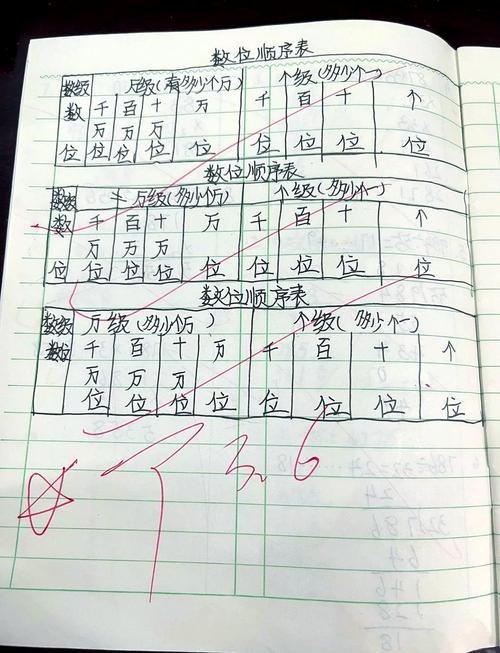 数位顺序表
数级 万级(有多少个万) 个级(多少个一)
数 千 百 十 万 千 百 十 个
万 万 万
位 位 位 位 位 位 位 位 位
数位顺序表
数级 万级(多少个万) 个级(多少个一)
数 千 百 十 万 千 百 十 个
万 万 万
位 位 位 位 位 位 位 位 位
数位顺序表
数级 万级(多少个万) 个级(多少个一)
数位 千 百 十 万 千 百 十 个
万 万 万
位 位 位 位 位 位 位 位
3.6